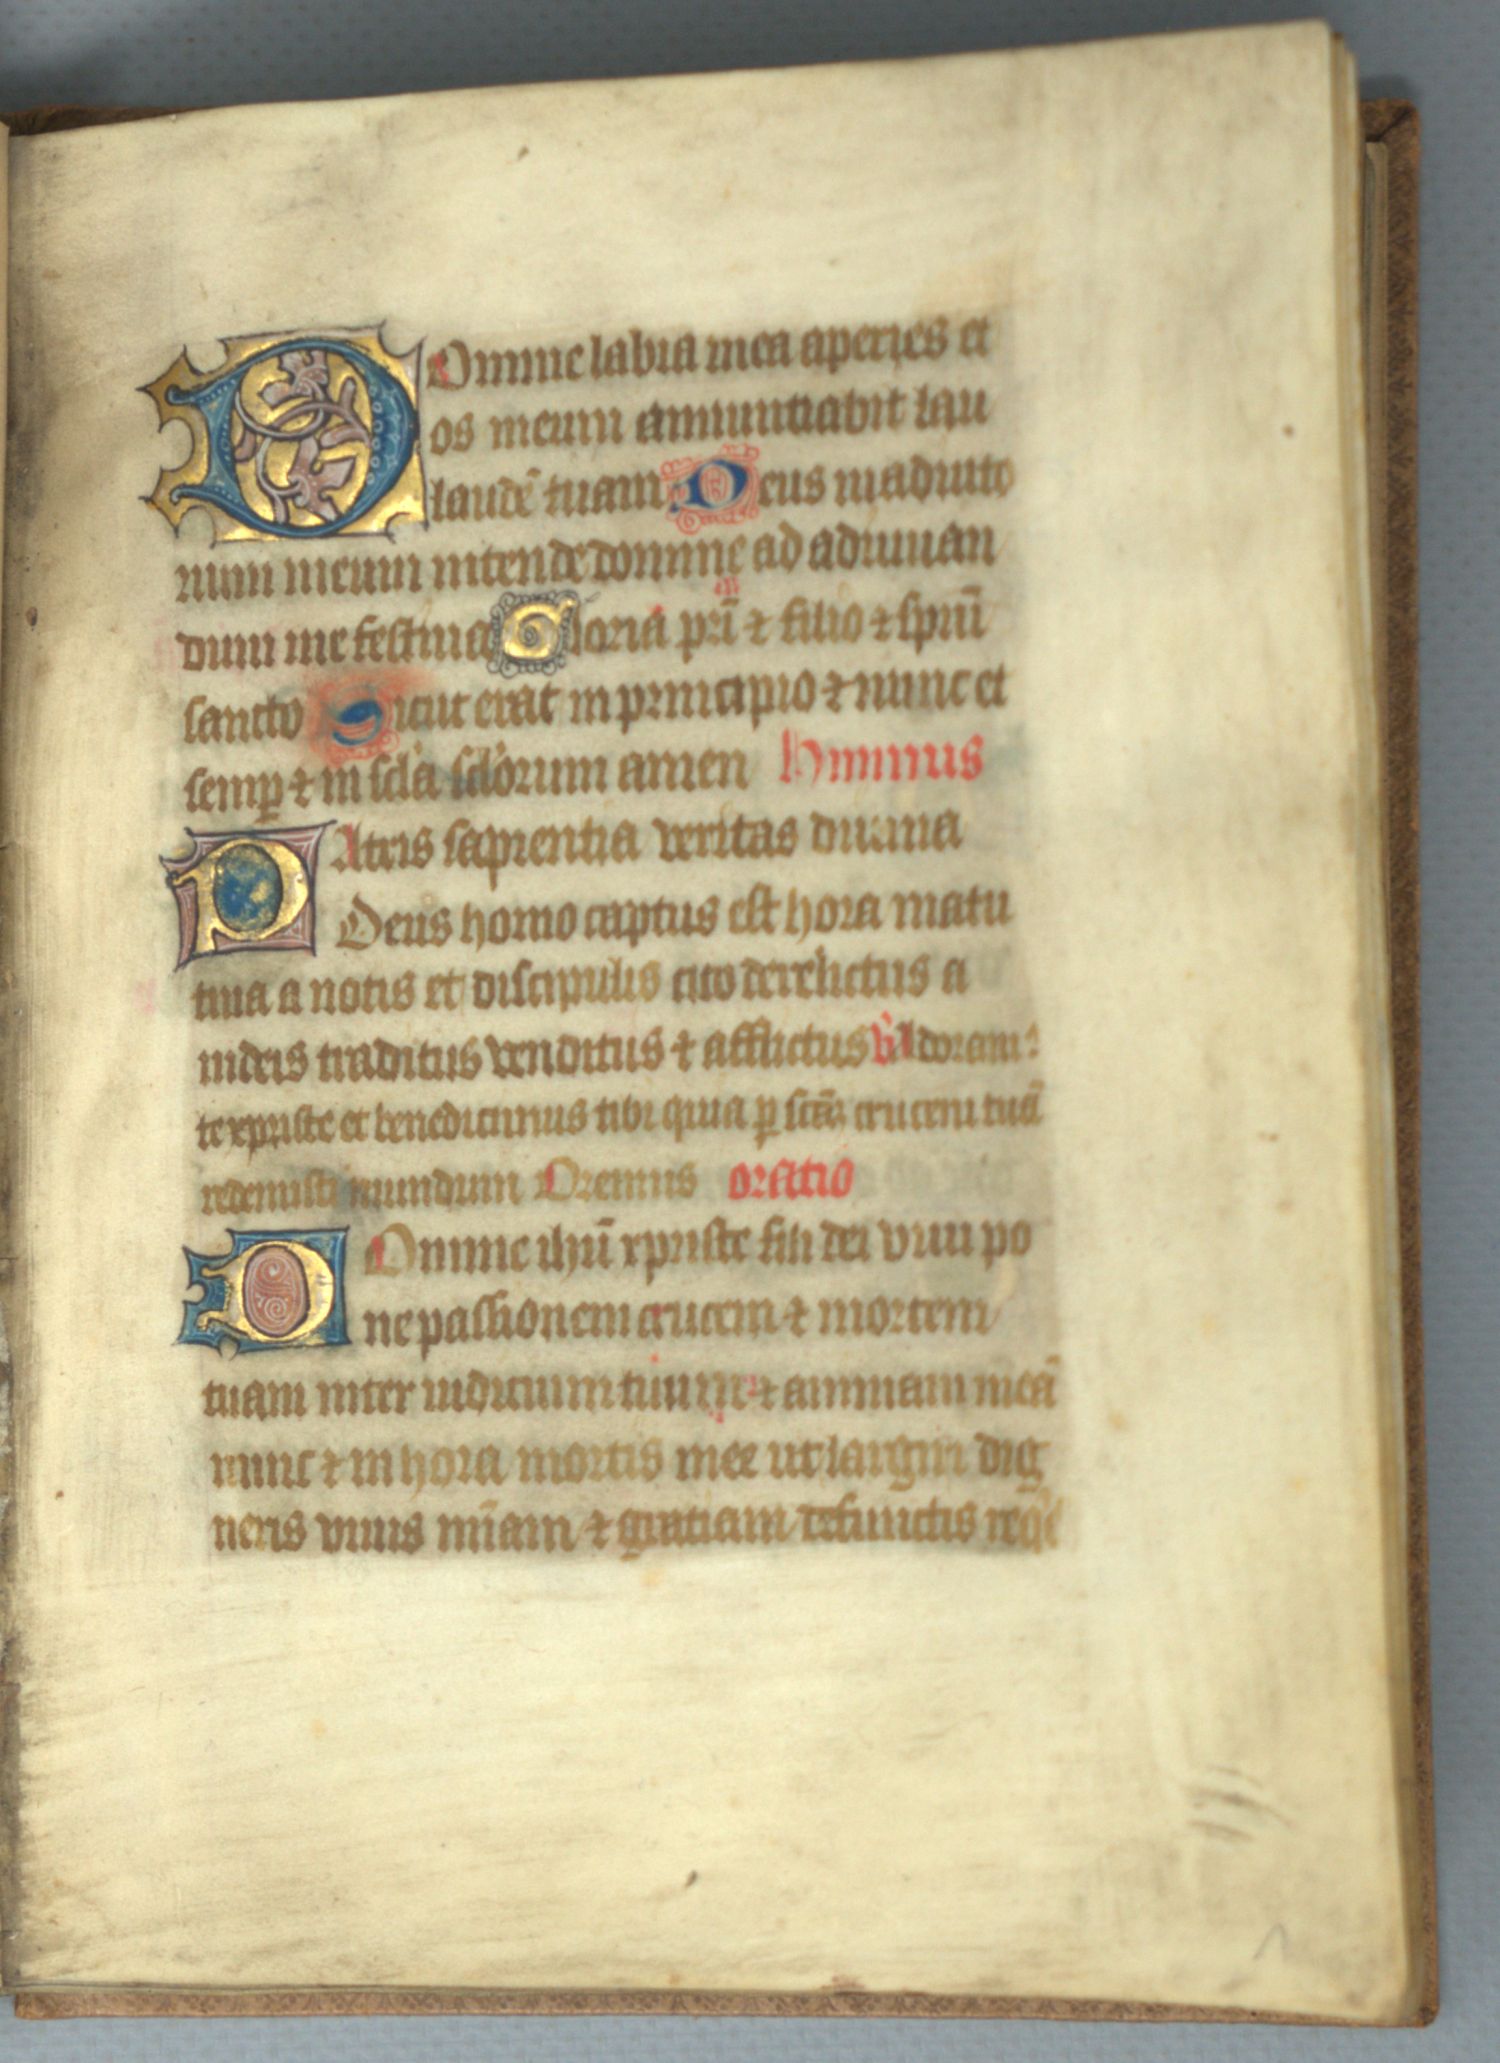 Domine labia mea aperies et
os meum annuntiabit lau
laudē tuam Deus in adiuto
rium meum intende domine ad adiuuan
dum me festina Gloria pr̄i ⁊ filio ⁊ spūi
sancto Sicut erat in principio ⁊ nunc et
semꝑ ⁊ in scl'a scl'orum amen Himnus
PAtris sapientia veritas diuina
Deus homo captus est hora matu
tina a notis et discipulis cito derelictus a
iudeis traditus venditus ⁊ afflictus v̄ Adoram⁹
te xpriste et benedicimus tibi quia ꝑ scāꝫ crucem tuā
redemisti mundum Oremus oratio
DOmine ihū xpriste fili dei viui po
ne passionem crucem ⁊ mortem
tuam inter iudicium tuum ⁊ animam meā
nunc ⁊ in hora mortis mee ut largiri dig
neris viuis mīam ⁊ gratiam defunctis